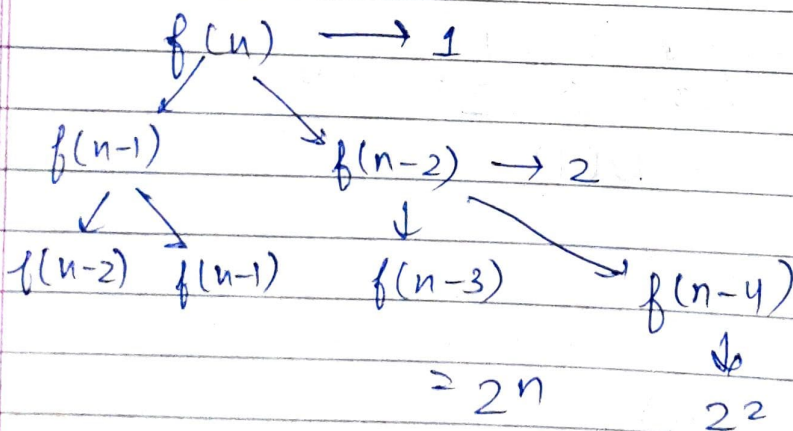 f(n) → 1
f(n-1) f(n-2) → 2
f(n-2) f(n-1) f(n-3) f(n-4)
= 2^n 2^2